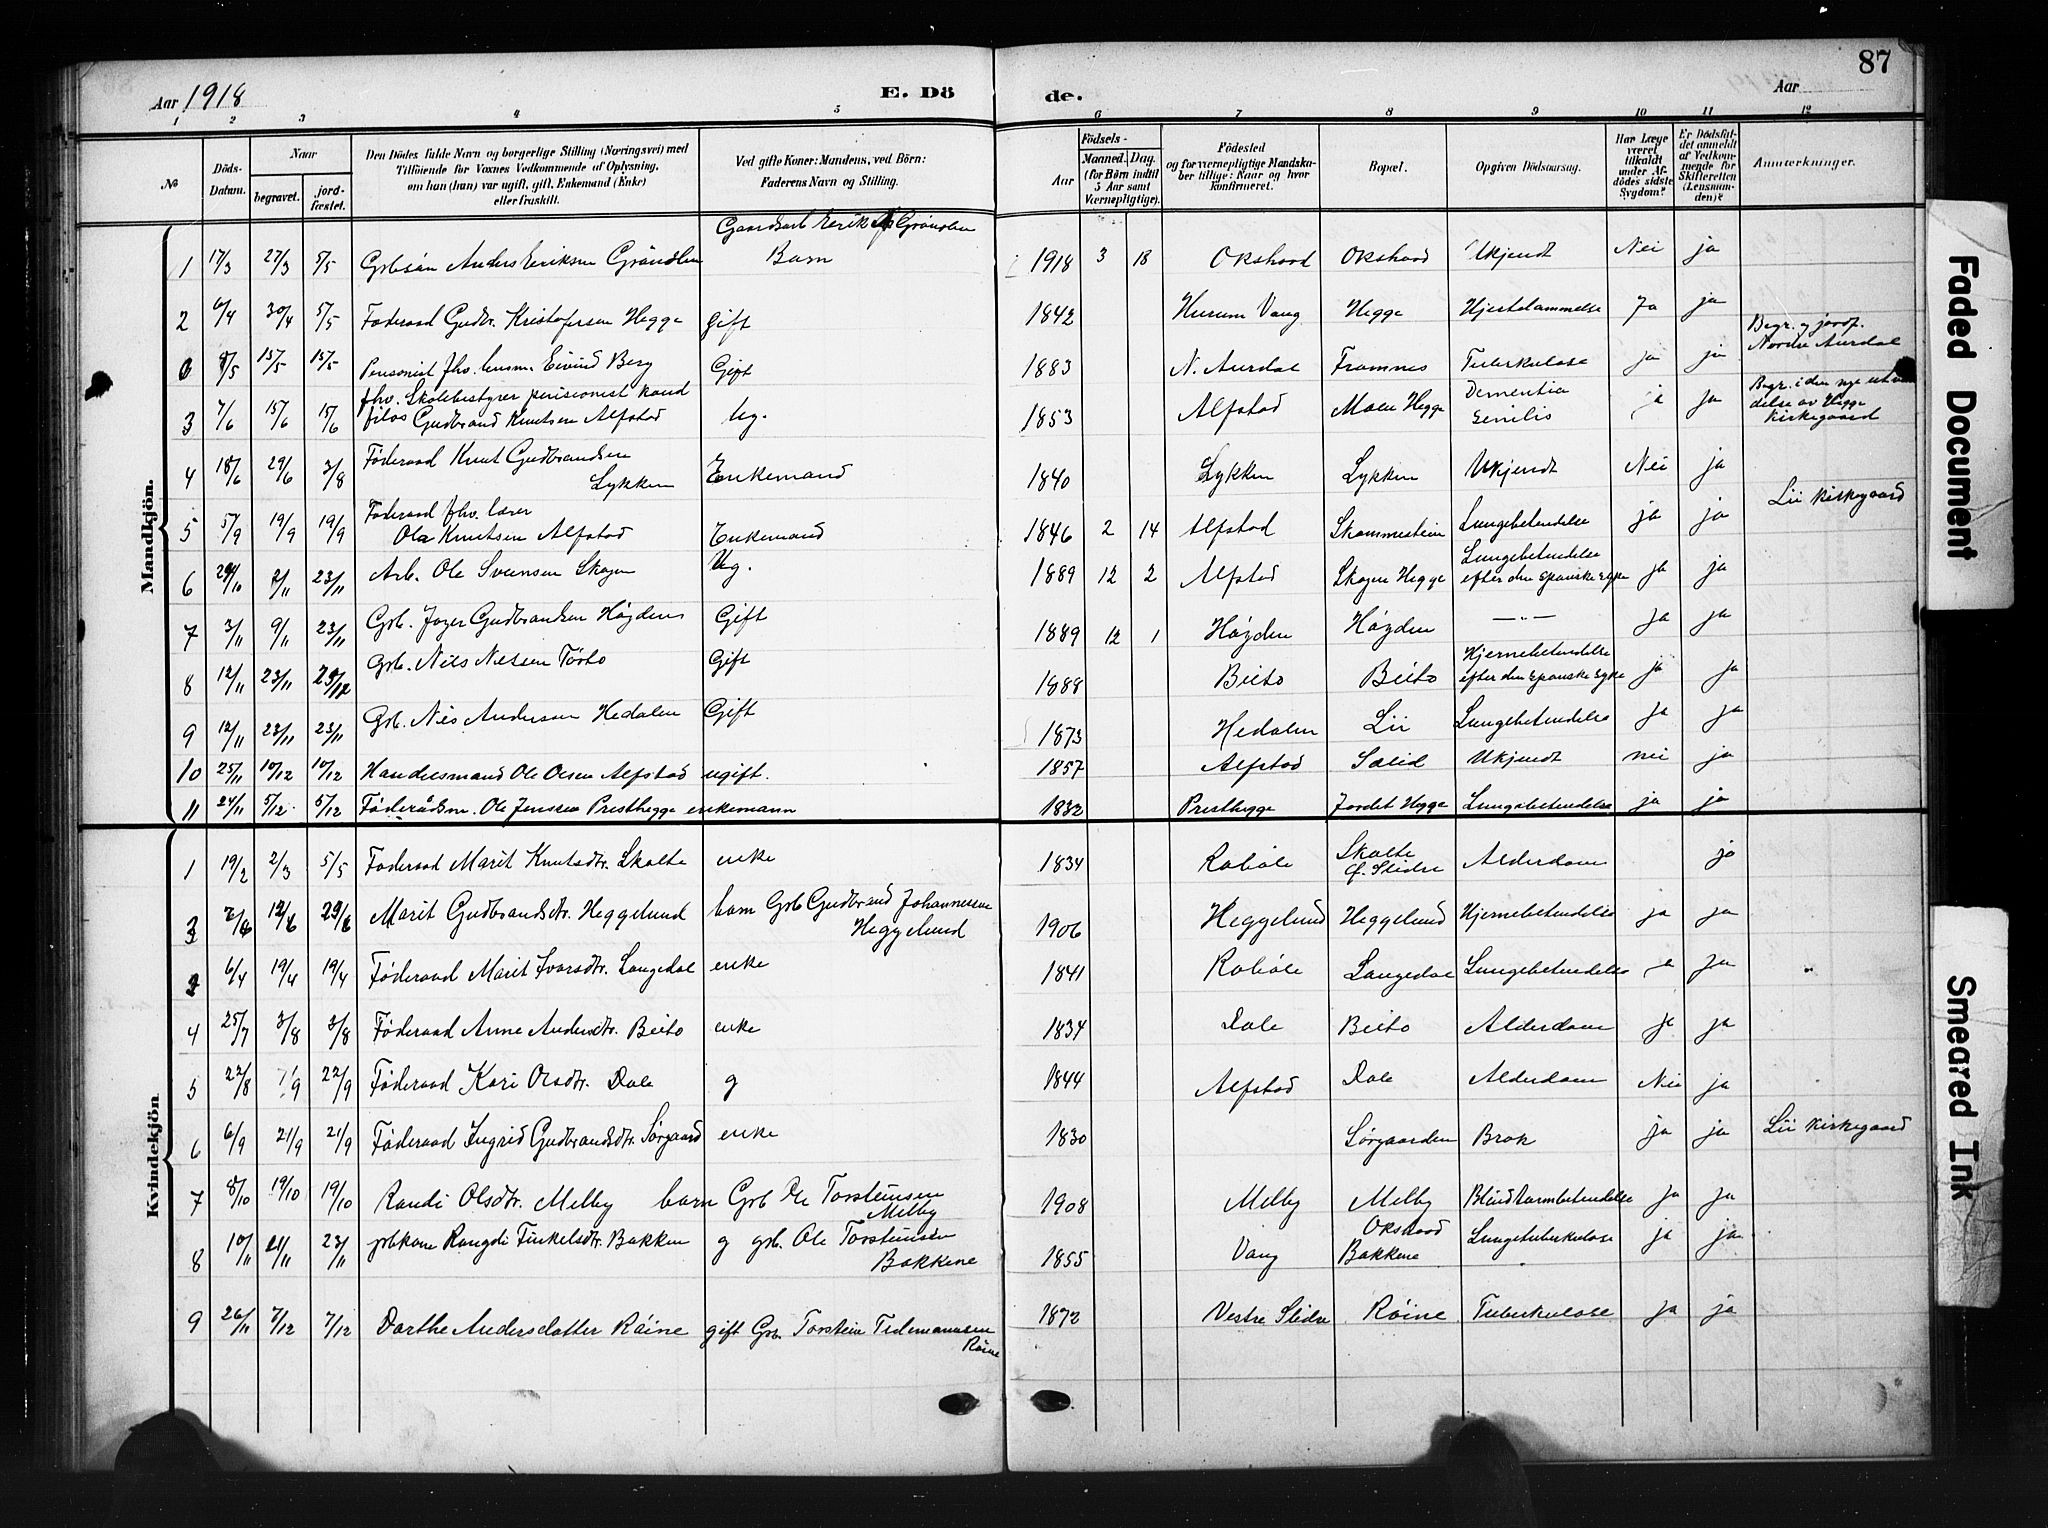 87
Aar 1918
E. Dö
de.
Aar
1 2 3 4 5 6 7 8 9 10 11 12
No
Döds-Datum.
Naar
begravet.
jord-fæstet.
Den Dödes fulde Navn og borgerlige Stilling (Næringsvei) med
Tilföiende for Voxnes Vedkommende af Oplysning,
om han (hun) var ugift, gift, Enkemand (Enke)
eller fraskilt.
Ved gifte Koner: Mandens, ved Börn:
Faderens Navn og Stilling.
Födsels-
Aar
Maaned. Dag.
(for Børn indtil
5 Aar samt
Værnepligtige).
Födested
og for værnepligtige Mandska-
ber tillige: Naar og hvor
konfirmeret.
Bopæl.
Opgiven Dödsaarsag.
Har Læge
været
tilkaldt
under Af-
dödes sidste
Sygdom?
Er Dødsfal-
det anmeldt
af Vedkom-
mende for
Skifteretten
(Lensman-
den)?
Anmærkninger.
Mandkjön.
Gaardsarb Eerik Grönolen
1 17/3 27/3 5/5 Grbsön Anders Eriksen Grönolen Barn 1918 3 18 Okshovd Okshovd Ukjendt Nei ja
2 6/4 30/4 5/5 Föderaad Gudbr. Kristofersen Hegge Gift 1842 Hurum Vang Hegge Hjertelammelse Ja ja
Begr. og jordf.
Nordre Aurdal
8/5 15/5 15/5 Pensonist fhv. lensm. Eivind Berg Gift 1883 N. Aurdal Framnes Tuberkulose ja ja
fhv. Skolebestyrer pensionist kand
3 7/6 15/6 15/6 filos Gudbrand Knutsen Alfstad Ug. 1853 Alfstad Moen Hegge Dementia Senilis ja ja
Begr. i den nye utvi
delse av Hegge
Kirkegaard
4 18/6 29/6 3/8 Föderaad Knut Gudbrandsen
Lykken Enkemand 1840 Lykken Lykken Ukjendt Nei ja
Föderaad fhv. lærer
5 5/9 19/9 19/9 Ola Knutsen Alfstad Enkemand 1846 2 14 Alfstad Skammestein Lungebetendelse ja ja Lii Kirkegaard
6 29/10 2/11 23/11 Arb. Ole Svensen Skogen Ug. 1889 12 2 Alfstad Skogen Hegge Lungebetendelse
efter den spanske syke ja ja
7 3/11 9/11 23/11 Grb. Gudbrandsen Høgden Gift 1889 12 1 Høgden Høgden —"— ja ja
8 12/11 23/11 29/12 Grb. Nils Nilsen Gift 1888 Beito Beito Hjernebetendelse
efter den spanske syke ja ja
9 12/11 23/11 23/11 Grb. Nils Andersen Hedalen Gift 1873 Hedalen Lii Lungebetendelse ja ja
10 25/11 10/12 10/12 Handelsmand Ole Olsen Alfstad ugift. 1857 Alfstad Sælid Ukjendt nei ja
11 24/11 5/12 5/12 Föderådsm. Ole Jenssen Presthegge enkemann 1832 Presthegge Jordet Hegge Lungebetendelse ja ja
Kvindekjön
1 19/2 2/3 5/5 Föderaad Marit Knutsdtr. Skolte enke 1834 Roböle Skolte
Ö. Slidre Alderdom ja
3 7/6 12/6 29/6 Marit Gudbrandsdtr. Heggelund barn Grb Gudbrand Johannesen
Heggelund 1906 Heggelund Heggelund Hjernebetendelse ja ja
2 6/4 19/4 19/4 Föderaad Marit Ivarsdtr. Langedal enke 1841 Roböle Langedal Lungebetendelse ja ja
4 25/7 3/8 3/8 Föderaad Anne Andersdtr. Beito enke 1834 Dale Beito Alderdom ja ja
5 22/8 1/9 22/9 Föderaad Kari Olsdtr. Dale g 1844 Alfstad Dale Alderdom Nei ja
6 6/9 21/9 21/9 Föderaad Ingrid Gudbrandsdtr. Sørgaard enke 1830 Sørgaarden Brok ja ja Lii Kirkegaard
7 8/10 19/10 19/10 Randi Olsdtr. Melby barn Grb Ole Torsteinsen
Melby 1908 Melby Melby Blindtarmbetendelse ja ja
8 10/11 21/11 23/11 grbkone Rangdi Finkelsdtr. Bakken g grb. Ole Torsteinsen
Bakkene 1855 Vang Okshovd
Bakkene Lungetuberkulose ja ja
9 26/11 7/12 7/12 Dorthe Andersdatter Röine gift Grb. Torstein Tidemannsen
Röine 1872 Vestre Slidre Röine Tuberkulose ja ja
Faded Document
Smeared Ink